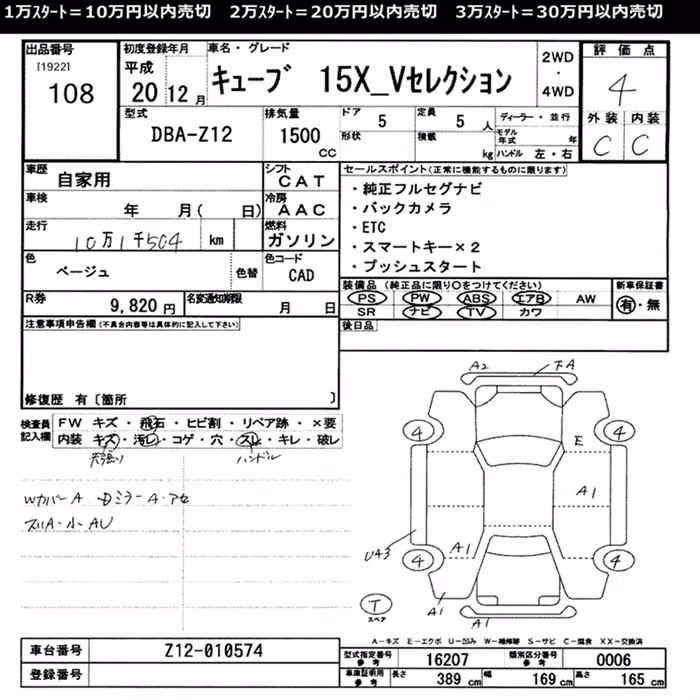 1万ｽﾀｰﾄ＝10万円以内売切 2万ｽﾀｰﾄ＝20万円以内売切 3万ｽﾀｰﾄ＝30万円以内売切
出品番号
[1922]
108
初度登録年月
平成
20 12月
車名・グレード
キューブ 15X_Vセレクション
2WD
・
4WD
評価点
4
外装 内装
C C
型式
DBA-Z12
排気量
1500
CC
ドア 5
形状
定員 5 人
積載 kg
ディーラー・並行
モデル年式 年
ハンドル 左・右
車歴
自家用
シフト
CAT
車検
年 月( 日)
冷房
AAC
走行
10万1千504 km
燃料
ガソリン
色
ベージュ
色替
色コード
CAD
R券
9,820 円
名変通知期限
月 日
セールスポイント(正常に機能するものに限ります)
・純正フルセグナビ
・バックカメラ
・ETC
・スマートキー×2
・プッシュスタート
装備品 (純正品に限り○をつけてください)
PS PW ABS エアB AW
SR ナビ TV カワ
新車保証書
有・無
後日品
注意事項申告欄(不具合内容等は具体的に記入して下さい)
修復歴 有〔箇所 〕
検査員
記入欄
FW キズ・飛石・ヒビ割・リペア跡・×要
内装 キズ・汚レ・コゲ・穴・スレ・キレ・破レ
天張り ハンドル
WカバーA DミラーA・アセ
ズリA・小・AU
A2 FA
4 4
E
A1
U43
A1
4 4
A1
A1
T
スペア
A－キズ E－エクボ U－凹み W－補修跡 S－サビ C－腐食 XX－交換済
車台番号
Z12-010574
登録番号
型式指定番号
参考
16207
類別区分番号
参考
0006
車庫証明用
参考
長さ 389 cm
幅 169 cm
高さ 165 cm